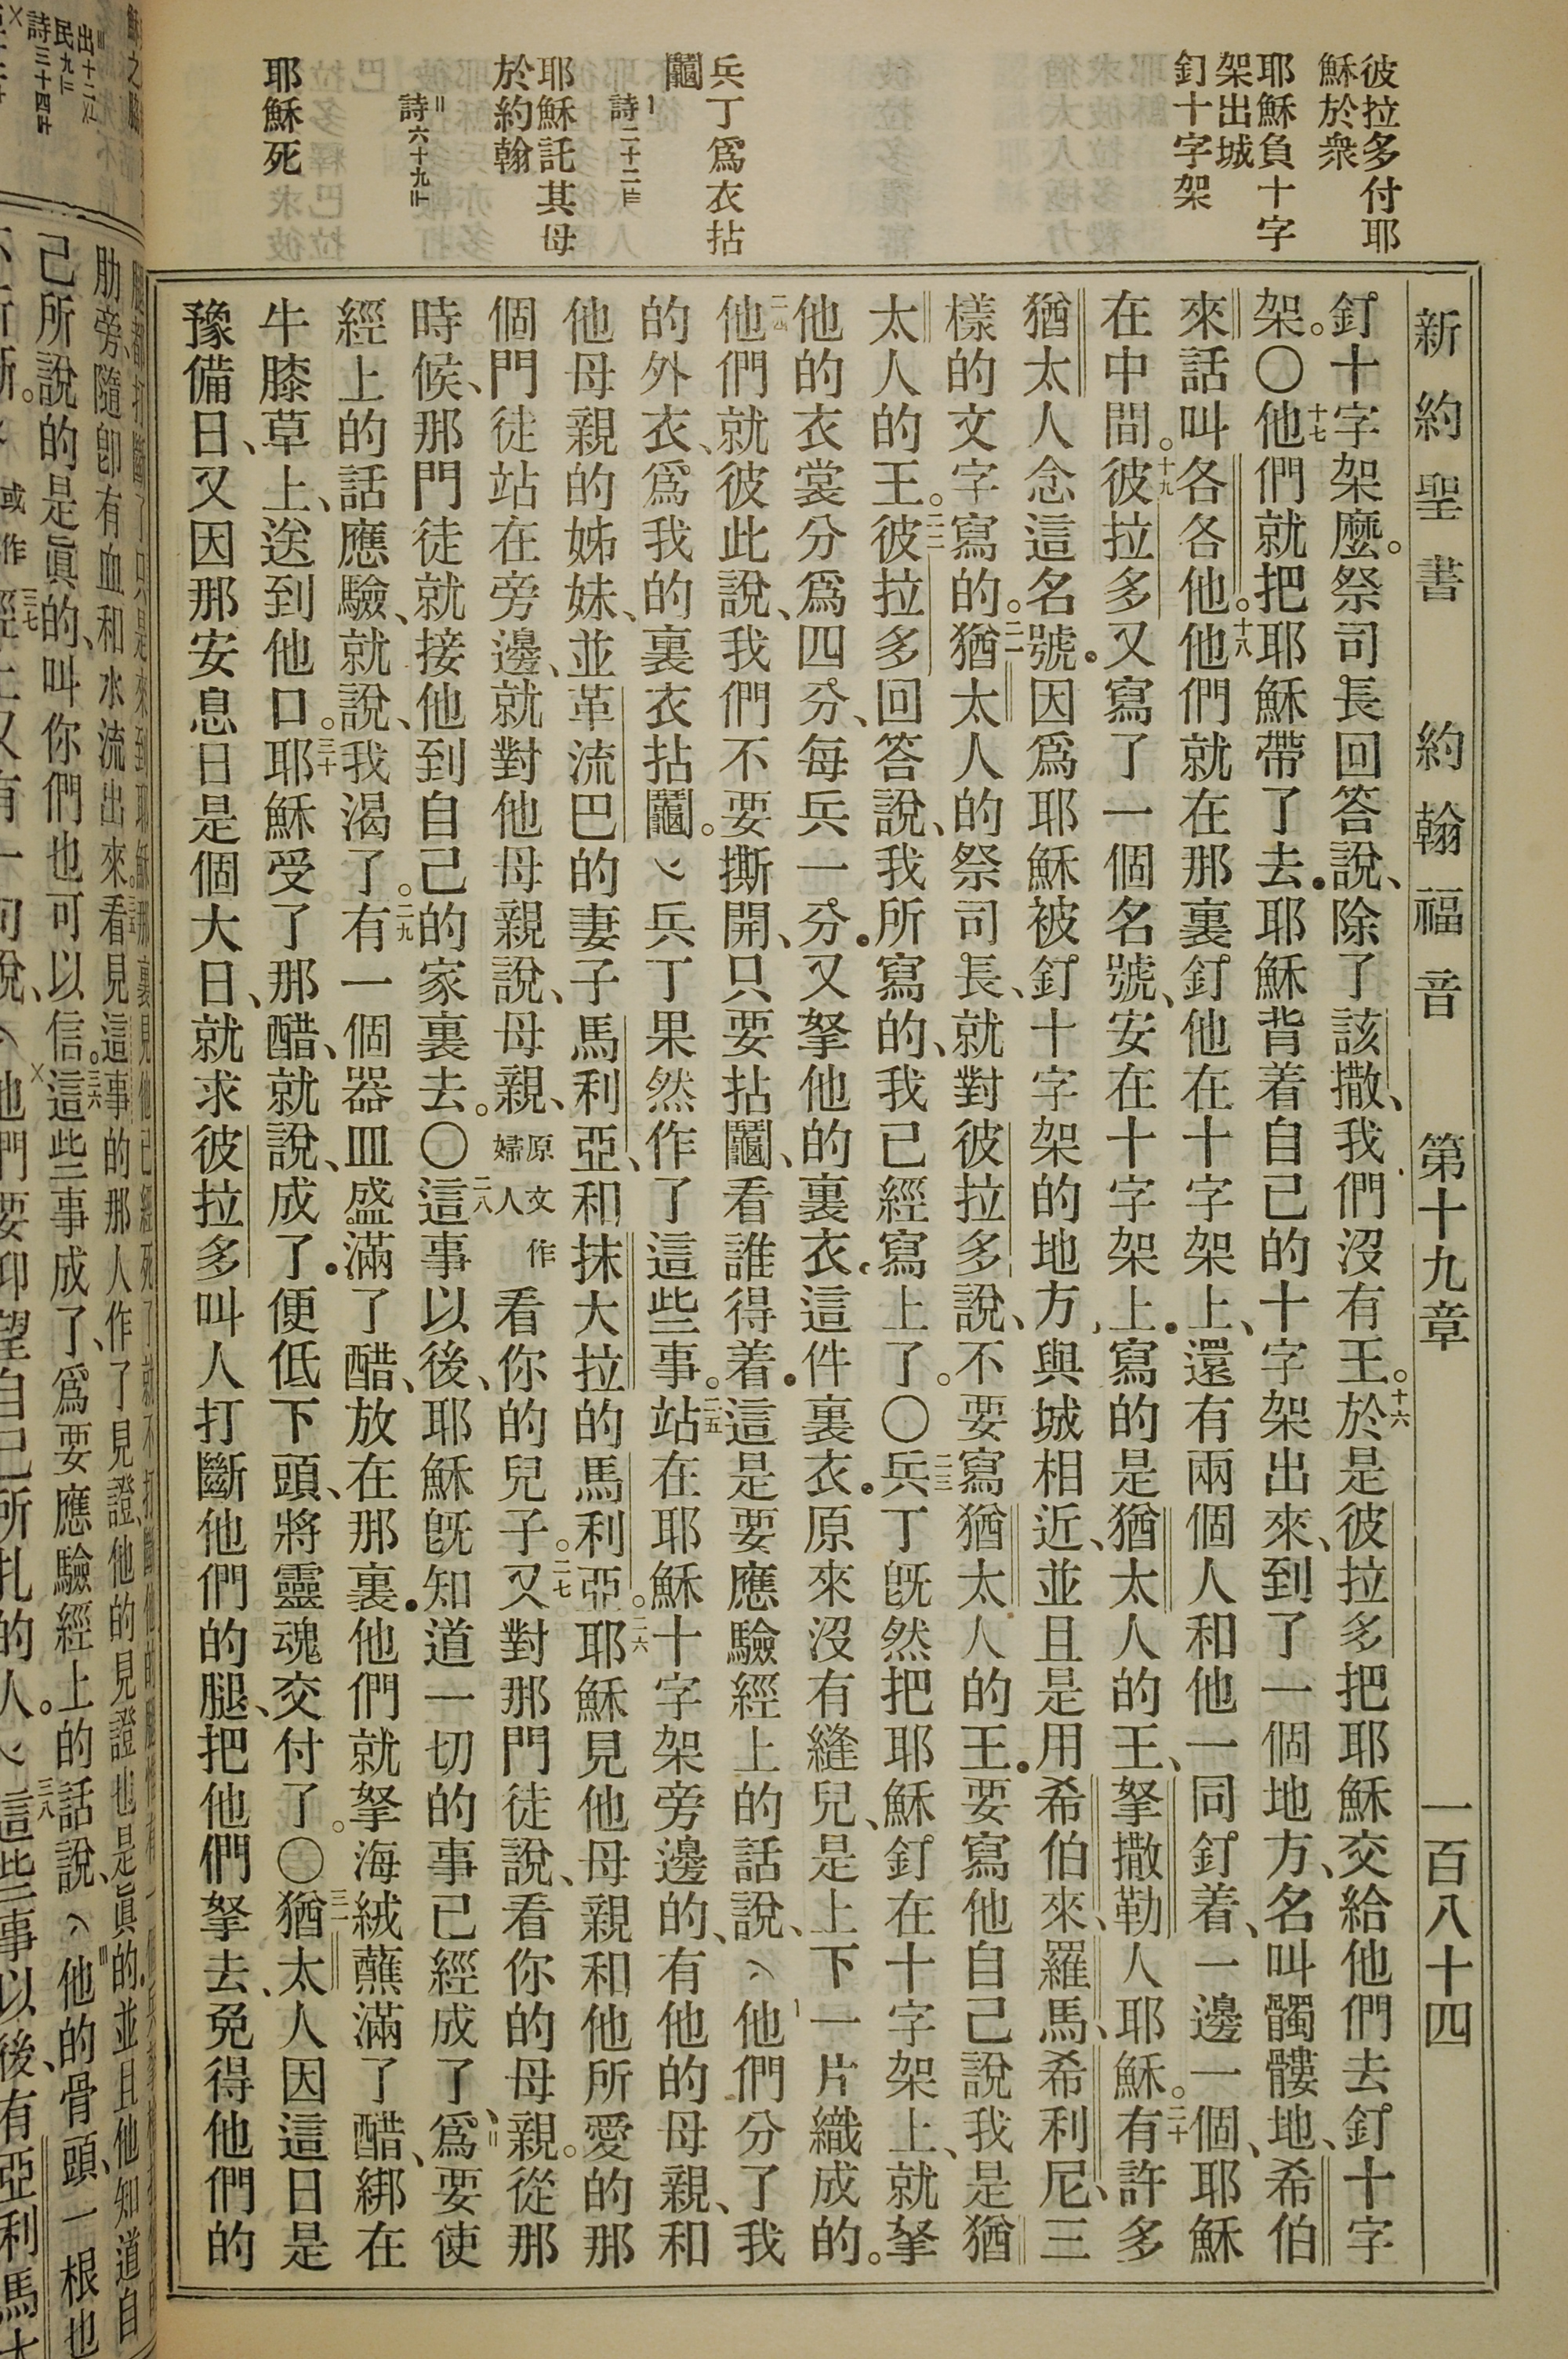 彼拉多付耶
穌於衆
耶穌負十字
架出城
釘十字架
兵丁爲衣拈
鬮
詩二十二
耶穌託其母
於約翰
詩六十九
耶穌死
新約聖書 約翰福音 第十九章 一百八十四
釘十字架麼。祭司長回答說、除了該撒、我們沒有王。十六於是彼拉多把耶穌交給他們去釘十字
架。〇十七他們就把耶穌帶了去．耶穌背着自己的十字架出來、到了一個地方、名叫髑髏地、希伯
來話叫各各他。十八他們就在那裏釘他在十字架上、還有兩個人和他一同釘着、一邊一個、耶穌
在中間。十九彼拉多又寫了一個名號、安在十字架上．寫的是猶太人的王、拏撒勒人耶穌。二十有許多
猶太人念這名號．因爲耶穌被釘十字架的地方、與城相近、並且是用希伯來、羅馬、希利尼、三
樣的文字寫的。二一猶太人的祭司長、就對彼拉多說、不要寫猶太人的王．要寫他自己說我是猶
太人的王。二二彼拉多回答說、我所寫的、我已經寫上了。〇二三兵丁旣然把耶穌釘在十字架上、就拏
他的衣裳分爲四分、每兵一分．又拏他的裏衣．這件裏衣．原來沒有縫兒、是上下一片織成的。
二四他們就彼此說、我們不要撕開、只要拈鬮、看誰得着．這是要應驗經上的話說、他們分了我
的外衣、爲我的裏衣拈鬮。兵丁果然作了這些事。二五站在耶穌十字架旁邊的、有他的母親、和
他母親的姊妹、並革流巴的妻子馬利亞、和抹大拉的馬利亞。二六耶穌見他母親和他所愛的那
個門徒站在旁邊、就對他母親說、母親、原文作婦人看你的兒子。二七又對那門徒說、看你的母親。從那
時候、那門徒就接他到自己的家裏去。〇二八這事以後、耶穌旣知道一切的事已經成了、爲要使
經上的話應驗、就說、我渴了。二九有一個器皿盛滿了醋、放在那裏．他們就拏海絨蘸滿了醋、綁在
牛膝草上、送到他口。三十耶穌受了那醋、就說、成了．便低下頭、將靈魂交付了。〇三一猶太人因這日是
豫備日、又因那安息日是個大日、就求彼拉多叫人打斷他們的腿、把他們拏去、免得他們的
肋旁、隨卽有血和水流出來。三五看見這事的那人作了見證、他的見證也是眞的．並且他知道自
己所說的是眞的、叫你們也可以信。三六這些事成了、爲要應驗經上的話說、他的骨頭、一根也